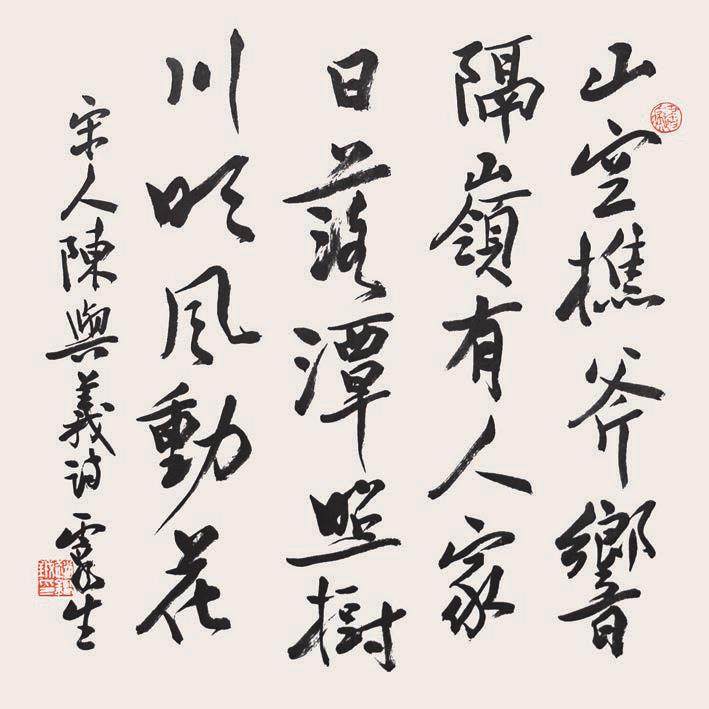 山空樵斧響
隔嶺有人家
日落潭照樹
川明風動花
宋人陳與義詩